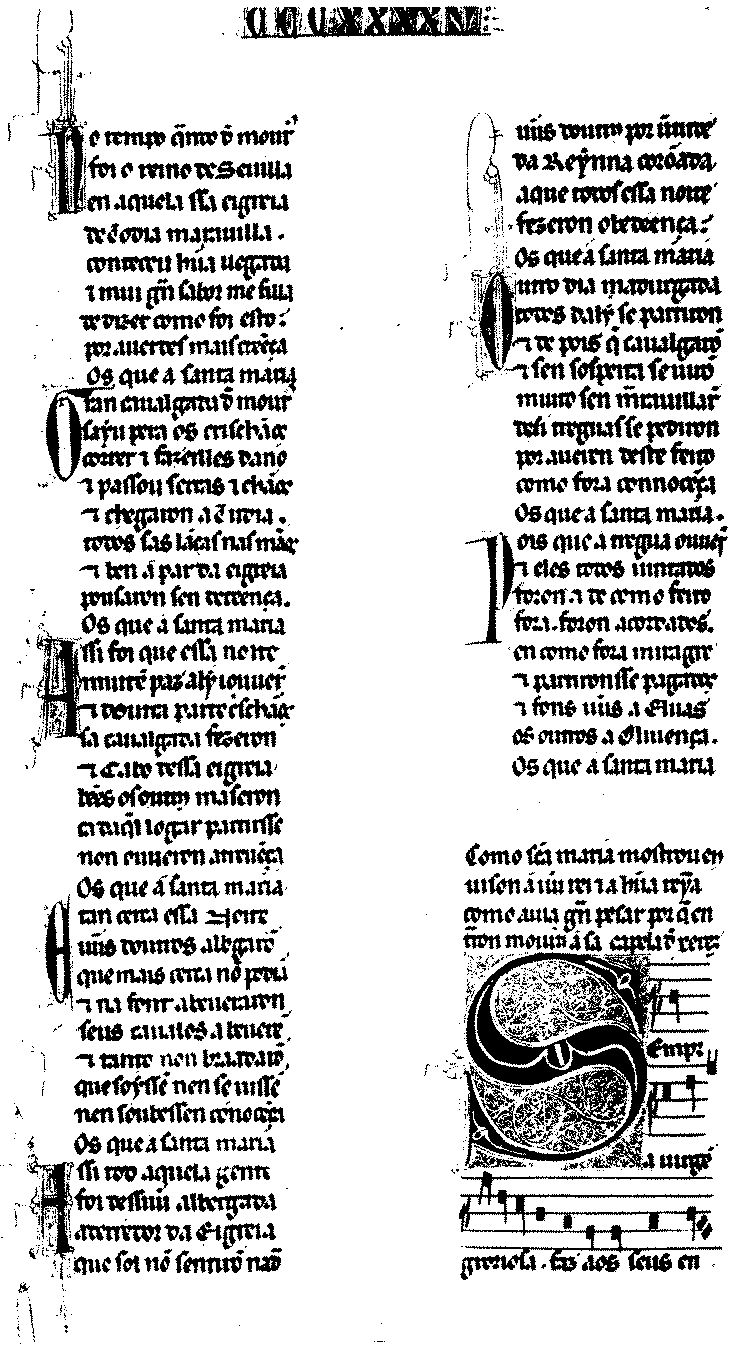 CCCXXXXIV
No tempo q̃nto d̃ mour
foi o reino de Seuilla
en aquela ssa eigreia
de d'Odia marauilla.
conteceu hũa uegada
⁊ mui gñ sabor me filla
de dizer como foi esto:
por auerdes mais creẽça
Os que a santa maria
O tan caualgada d̃ mour
sayu pera os crischãos
correr ⁊ fazerlles dano
⁊ passou serras ⁊ chãos
⁊ chegaron a
todos sas lãças nas mãos
⁊ ben a par da eigreia
pousaron sen deteença.
Os que a santa maria
Assi foi que essa noite
mouros par aly iouuer
⁊ doutra parte cischãos
sa caualgada fezeron
⁊ Cabo dessa eigreia
bẽes osoutros maseron
ca daq̃l logar partisse
non ouueron atreuẽça
Os que a santa maria
A tan cerca essa Noite
ũus doutros albergarõ
que mais cerca nõ podia
⁊ na font abeueraron
seus caualos a beuer
⁊ tanto non braadarõ
que soysse nen se uisse
nen soubessen cõnocẽça
Os que a santa maria
Assi tod aquela gente
foi dessũu albergada
aderredor da Eigreia
que sol nõ sentirõ nad
ũus doutro por uirtude
da Reynna corõada
a que todos essa noite
fezeron obedeença:
Os que a santa maria
Outro dia madurgada
todos daly se partiron
⁊ de pois q̃ caualgarõ
⁊ sen sospeita se uirõ
muito sen marauillar
desi treguas se pediron
por aueren deste feito
como fora connoceça
Os que a santa maria.
Pois que a tregua ouuer
⁊ eles todos iuntados
foron a de como feito
fora. foron acordados.
en como fora miragre
⁊ partironsse pagados
⁊ fons ũus a Eluas
os outros a Oliuença.
Os que a santa maria
Como sc̃a maria mostrou en
uison a ũu rei ⁊ a hũa reỹa
como auia gñ pesar por q̃ en
tron mouia a sa capela d̃ xerez
Sempr
a uirgẽ
groriosa. faz aos seus en